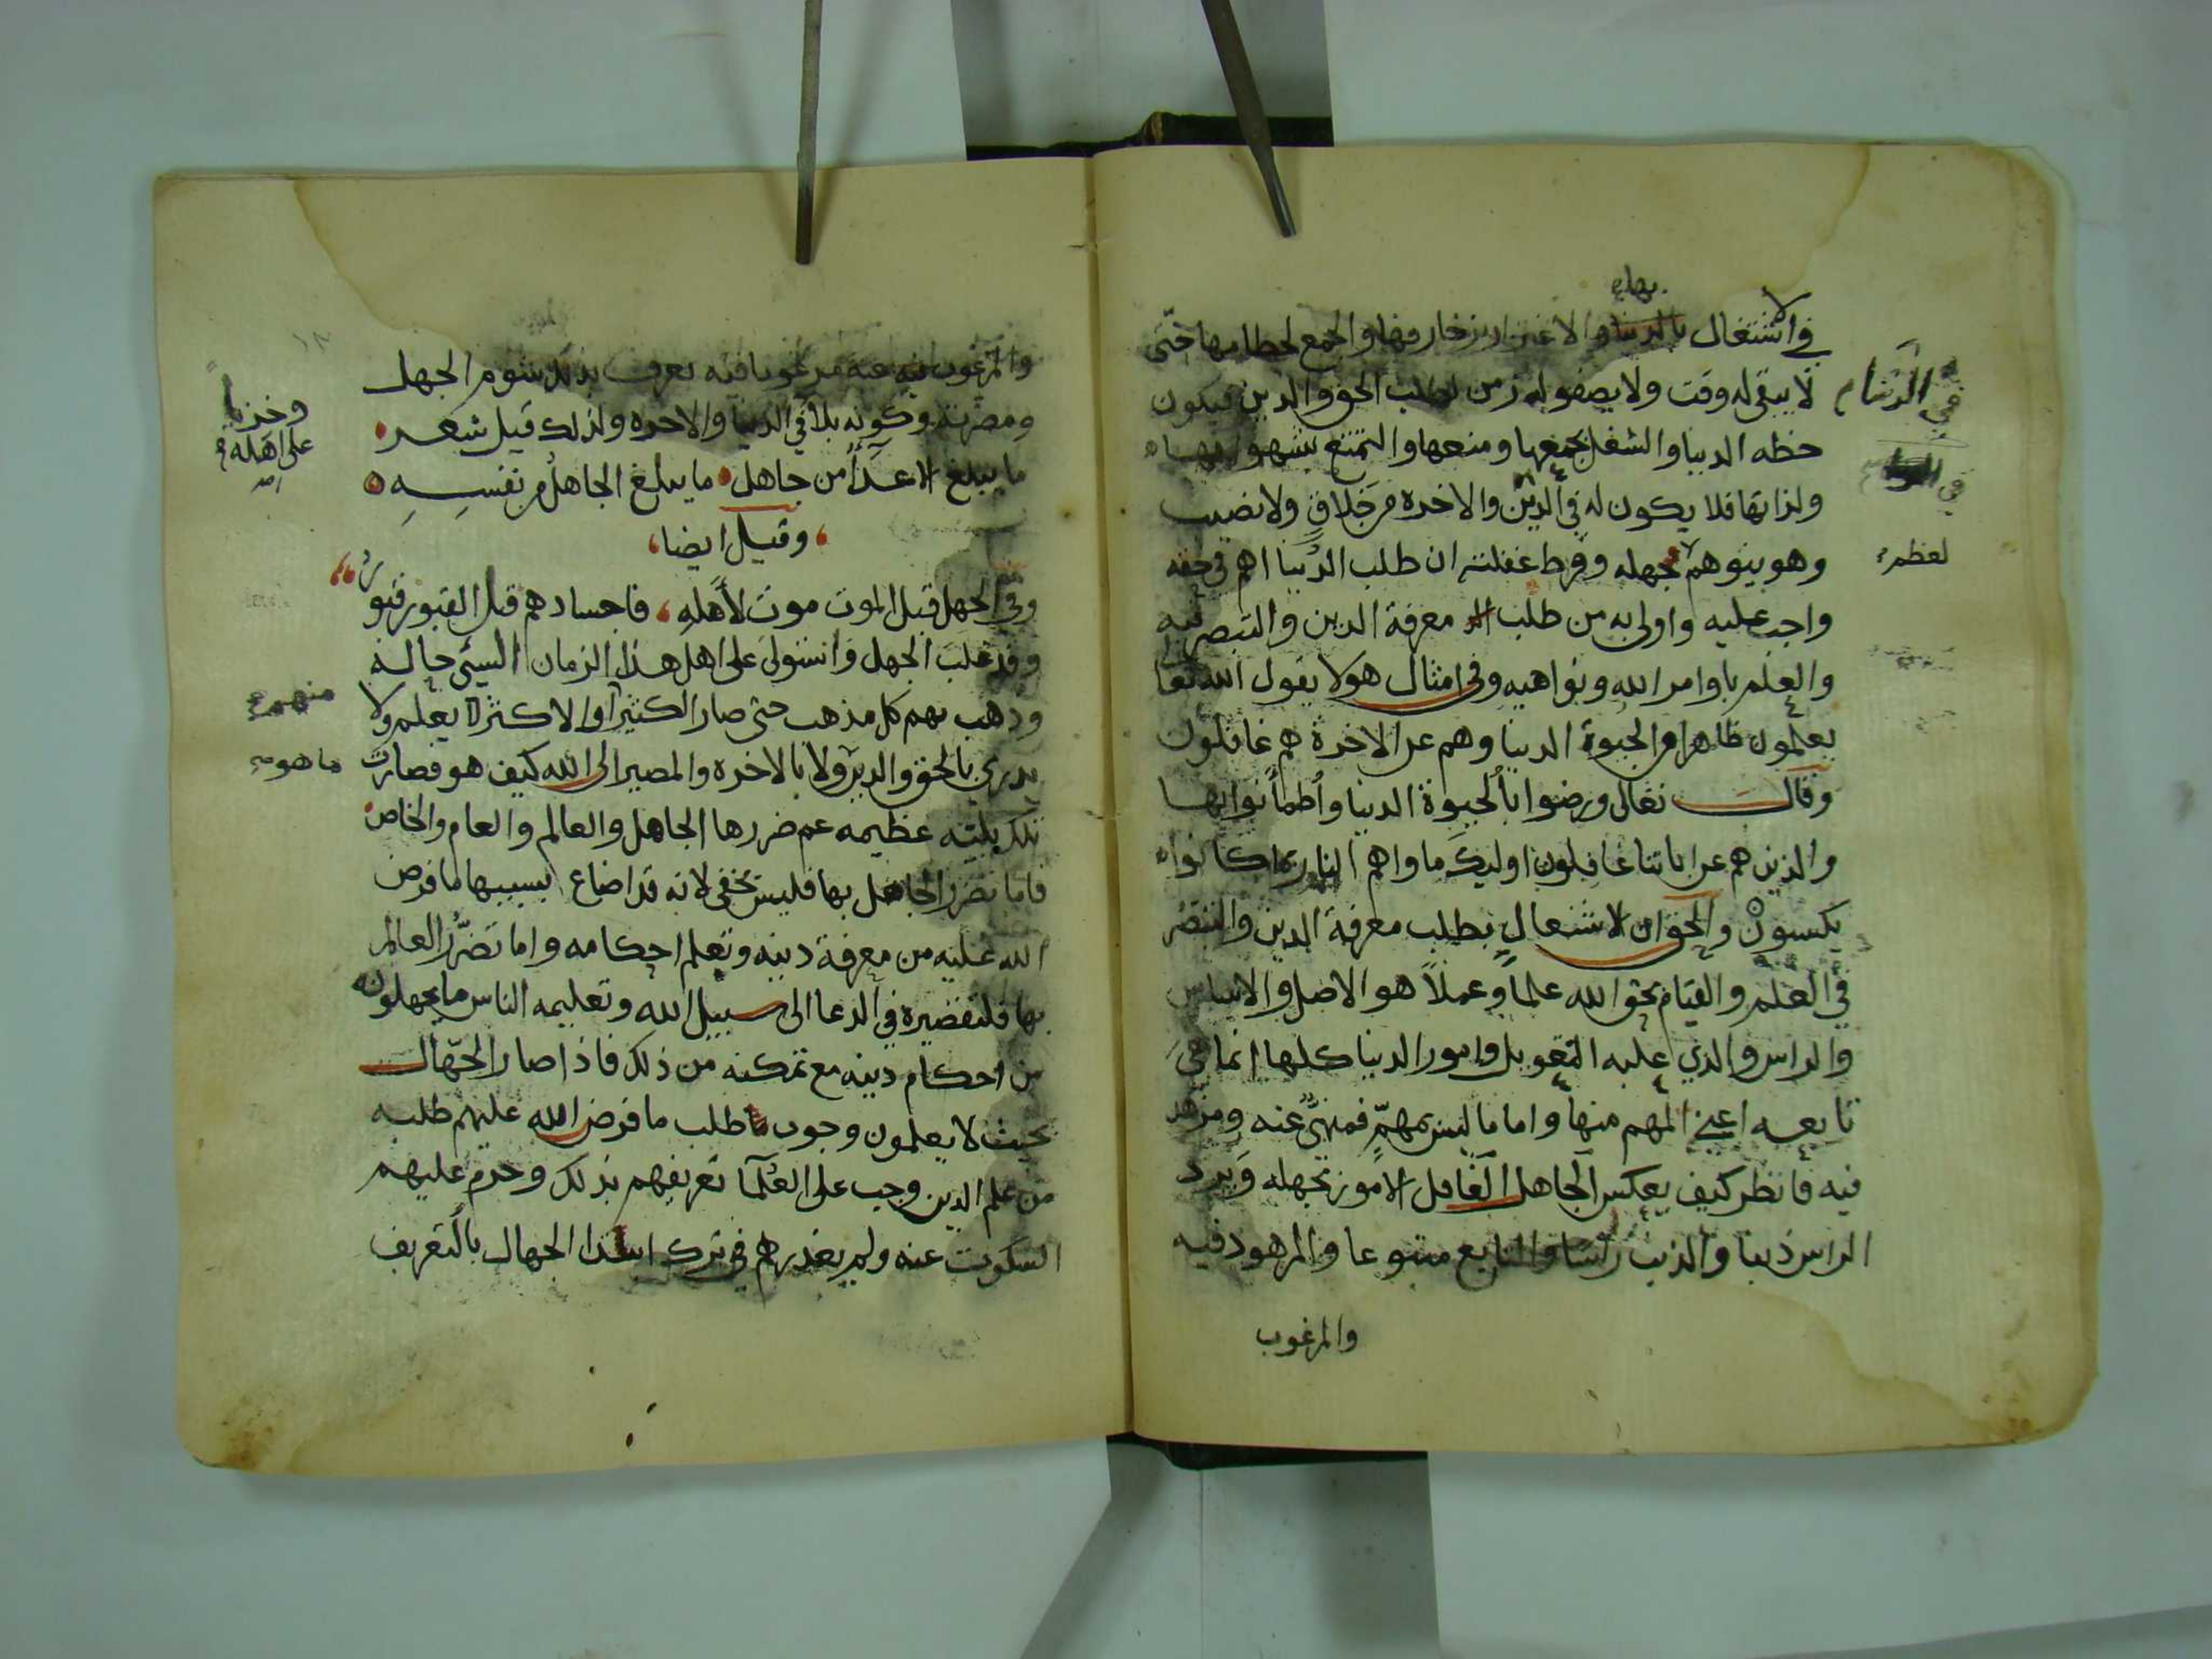 في الاشتغال بالدنيا والاغترار بزخارفها والجمع لحطامها حتى
لا يبقى له وقت ولا يصفو له زمن لطلب الحق والدين فيكون
حظه الدنيا والشغل بجمعها ومنعها والتمتع بشهواتها
ولذاتها فلا يكون له في الدين والاخرة من خلاق ولا نصيب
وهو يتوهم لجهله وفرط غفلته ان طلب الدنيا اهم في حقه
واجب عليه واولى به من طلب معرفة الدين والتبصر فيه
والعلم باوامر الله ونواهيه وفي امثال هولا يقول الله تعا
يعلمون ظاهرا من الحيوة الدنيا وهم عن الاخرة هم غافلون
وقال تعالى ورضوا بالحيوة الدنيا واطمأنوا بها
والذين هم عن اياتنا غافلون اوليك ماواهم النار بما كانوا
يكسبون والحق ان الاشتغال بطلب معرفة الدين والتبصر
في العلم والقيام بحق الله علما وعملاً هو الاصل والاساس
والراس والذي عليه التعويل وامور الدنيا كلها انما هي
تابعه اعني المهم منها واما ما ليس بمهمّ فمنهيٌّ عنه ومزهد
فيه فانظر كيف يعكس الجاهل الغافل الامور بجهله ويرد
الراس ذنبا والذنب راسا والتابع متبوعا والمزهود فيه
والمرغوب
في الدنيا
لعظم
والمرغوب فيه عنه مرغوبا فيه تعرف بذلك شوم الجهل
ومضرته وكونه بلا في الدنيا والاخره ولذلك قيل شعر
ما يبلغ الاعدا من جاهل ما يبلغ الجاهل من نفسه
وقيل ايضا
وفي الجهل قبل الموت موت لأهله فاجسادهم قبل القبور قبور
وقد غلب الجهل واستولى على اهل هذا الزمان السيئ حاله
وذهب بهم كل مذهب حتى صار الكثير او الاكثر لا يعلم ولا
يدري بالحق والدين ولا بالاخره والمصير الى الله كيف هو فصارت
تلك بليّه عظيمه عم ضررها الجاهل والعالم والعام والخاص
فاما تضرر الجاهل بها فليس يخفى لانه قد اضاع بسببها ما فرض
الله عليه من معرفة دينه وتعلم احكامه واما تضرُّر العالم
بها فلتقصيره في الدعا الى سبيل الله وتعليمه الناس ما يجهلونه
من احكام دينه مع تمكنه من ذلك فاذا صار الجهّال
بحيث لا يعلمون وجوب طلب ما فرض الله عليهم طلبه
من علم الدين وجب على العلما تعريفهم بذلك وحرم عليهم
السكوت عنه ولم يعذرهم في ترك ابتدا الجهال بالتعريف
على اهله
منهم
ما هو